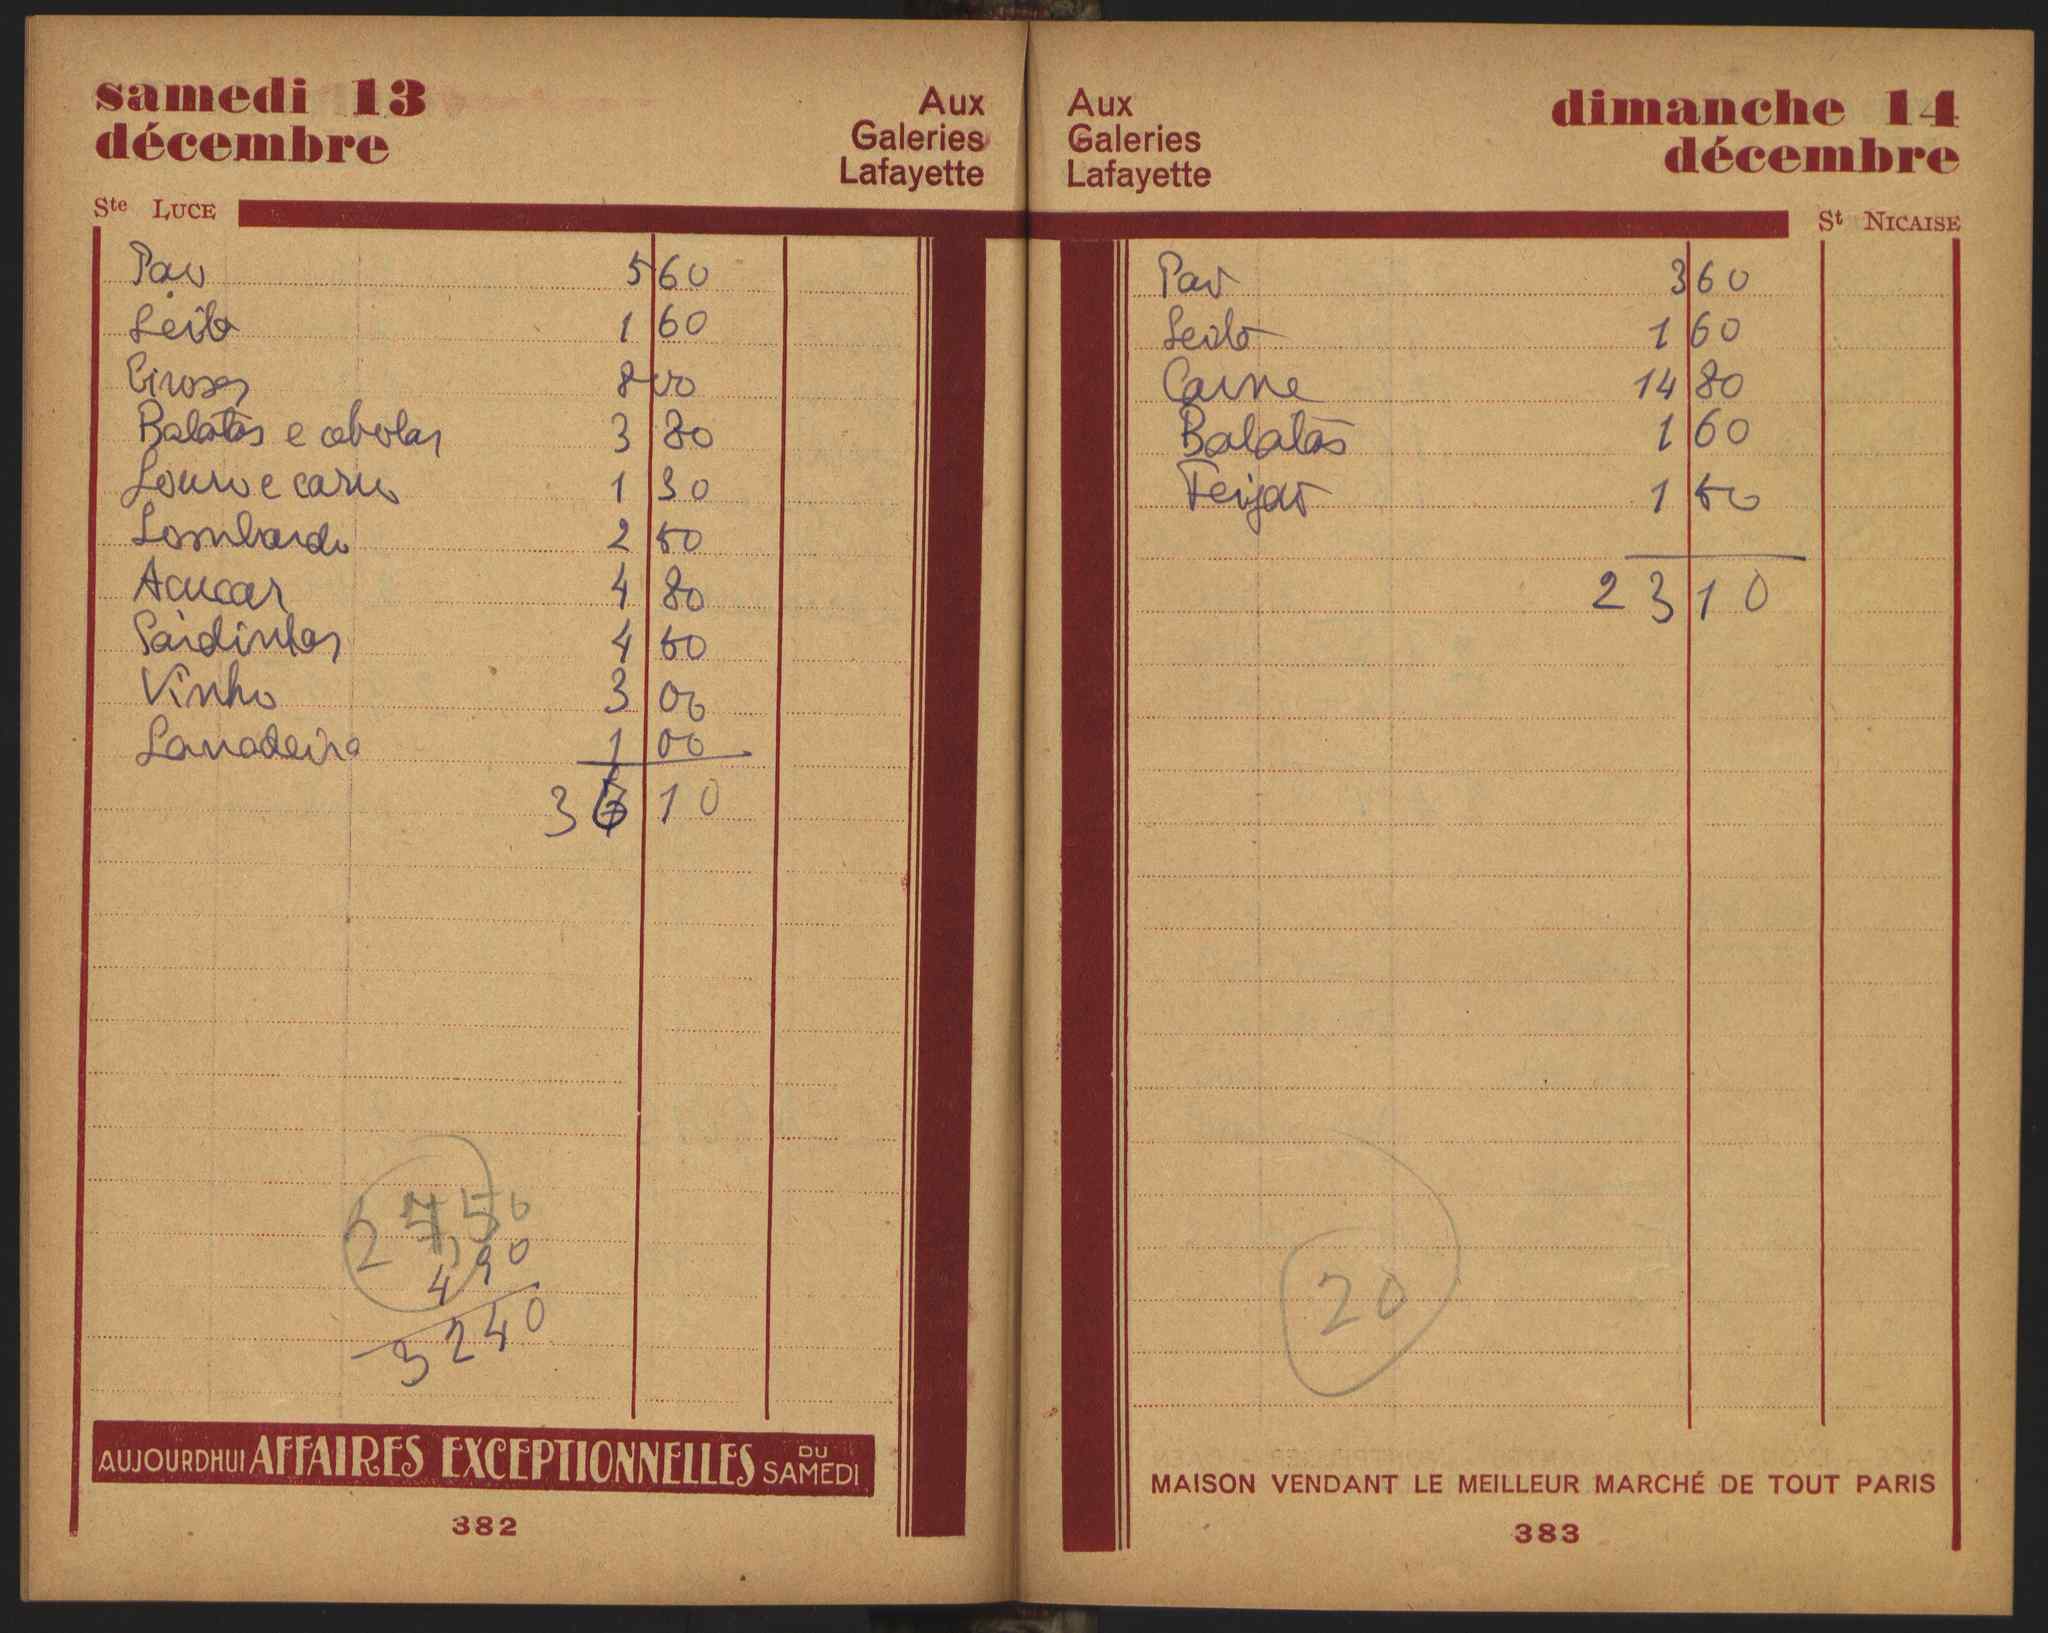 samedi 13
décembre
Aux
Galeries
Lafayette
Ste LUCE
Pão 5 60
Leite 1 60
8 00
Batatas e cebolas 3 80
Louro e carne 1 30
Lombardo 2 50
Acucar 4 80
Sardinhas 4 50
Vinho 3 00
Lavadeira 1 00
36 10
4 90
32 40
AUJOURDHUI AFFAIRES EXCEPTIONNELLES DU SAMEDI
382
Aux
Galeries
Lafayette
dimanche 14
décembre
St NICAISE
Pão 3 60
Leite 1 60
Carne 14 80
Batatas 1 60
Feijão 1 50
23 10
20
MAISON VENDANT LE MEILLEUR MARCHÉ DE TOUT PARIS
383